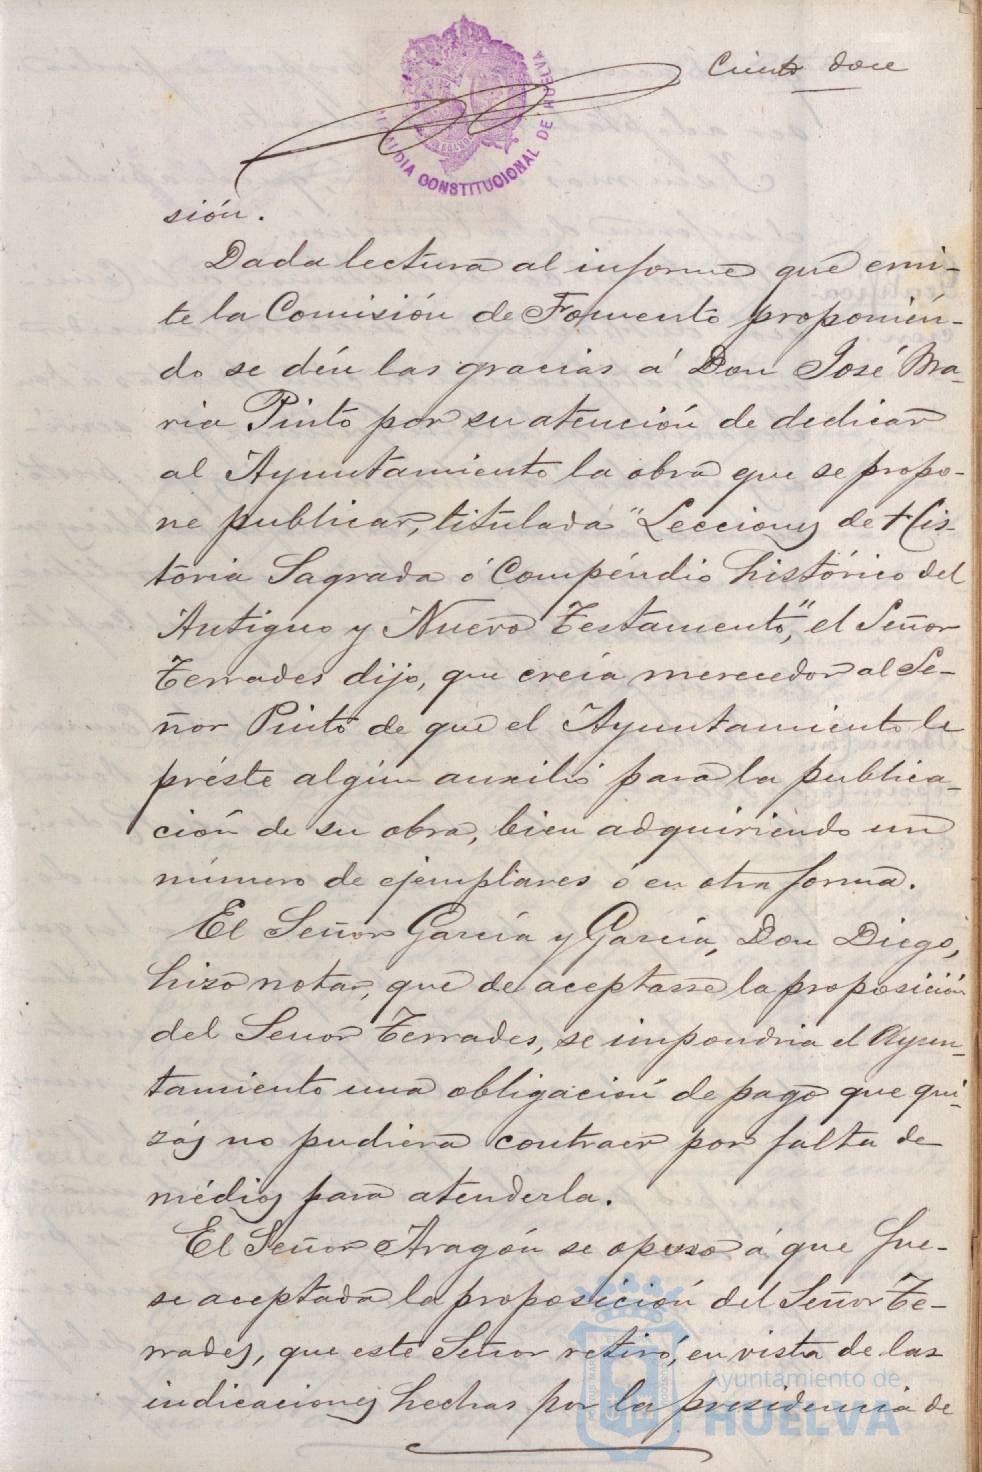 Ciento doce
ALCALDIA CONSTITUCIONAL DE HUELVA
sión.
Dada lectura al informe que emi-
te la Comisión de Fomento proponién-
do se dén las gracias á Don José Ma-
ria Pinto por su atención de dedicar
al Ayuntamiento la obra que se propo-
ne publicar, titulada "Lecciones de His-
toria Sagrada ó Compéndio histórico del
Antiguo y Nuevo Testamento", el Señor
Terrades dijo, que creía merecedor al Se-
ñor Pinto de que el Ayuntamiento le
préste algún auxilio para la publica-
ción de su obra, bien adquiriendo un
número de ejemplares ó en otra forma.
El Señor García y García, Don Diego,
hizo notar, que de aceptarse la proposición
del Señor Terrades, se impondria el Ayun-
tamiento una obligación de pago que qui-
zás no pudiera contraer por falta de
médios para atenderla.
El Señor Aragón se opuso á que fue-
se aceptada la proposición del Señor Te-
rrades, que este Señor retiró, en vista de las
indicaciones hechas por la presidencia de
Ayuntamiento de
HUELVA